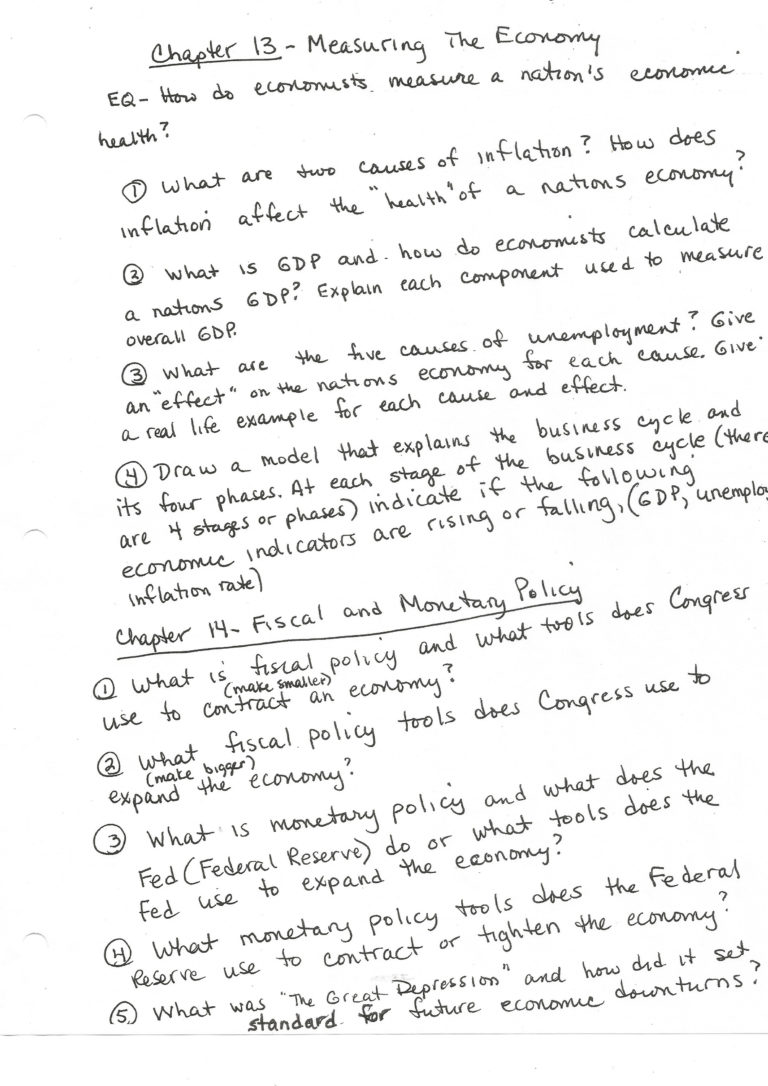 Chapter 13 - Measuring The Economy
EQ - How do economists measure a nation's economic
health?
① What are two causes of inflation? How does
inflation affect the "health" of a nations economy?
② What is GDP and how do economists calculate
a nations GDP? Explain each component used to measure
overall GDP.
③ What are the five causes of unemployment? Give
an "effect" on the nations economy for each cause. Give
a real life example for each cause and effect.
④ Draw a model that explains the business cycle and
its four phases. At each stage of the business cycle (there
are 4 stages or phases) indicate if the following
economic indicators are rising or falling, (GDP, unemploy
inflation rate)
Chapter 14 - Fiscal and Monetary Policy
① What is fiscal policy and what tools does Congress
(make smaller)
use to contract an economy?
② What fiscal policy tools does Congress use to
(make bigger)
expand the economy?
③ What is monetary policy and what does the
Fed (Federal Reserve) do or what tools does the
Fed use to expand the economy?
④ What monetary policy tools does the Federal
Reserve use to contract or tighten the economy?
⑤ What was "The Great Depression" and how did it set
standard for future economic downturns?